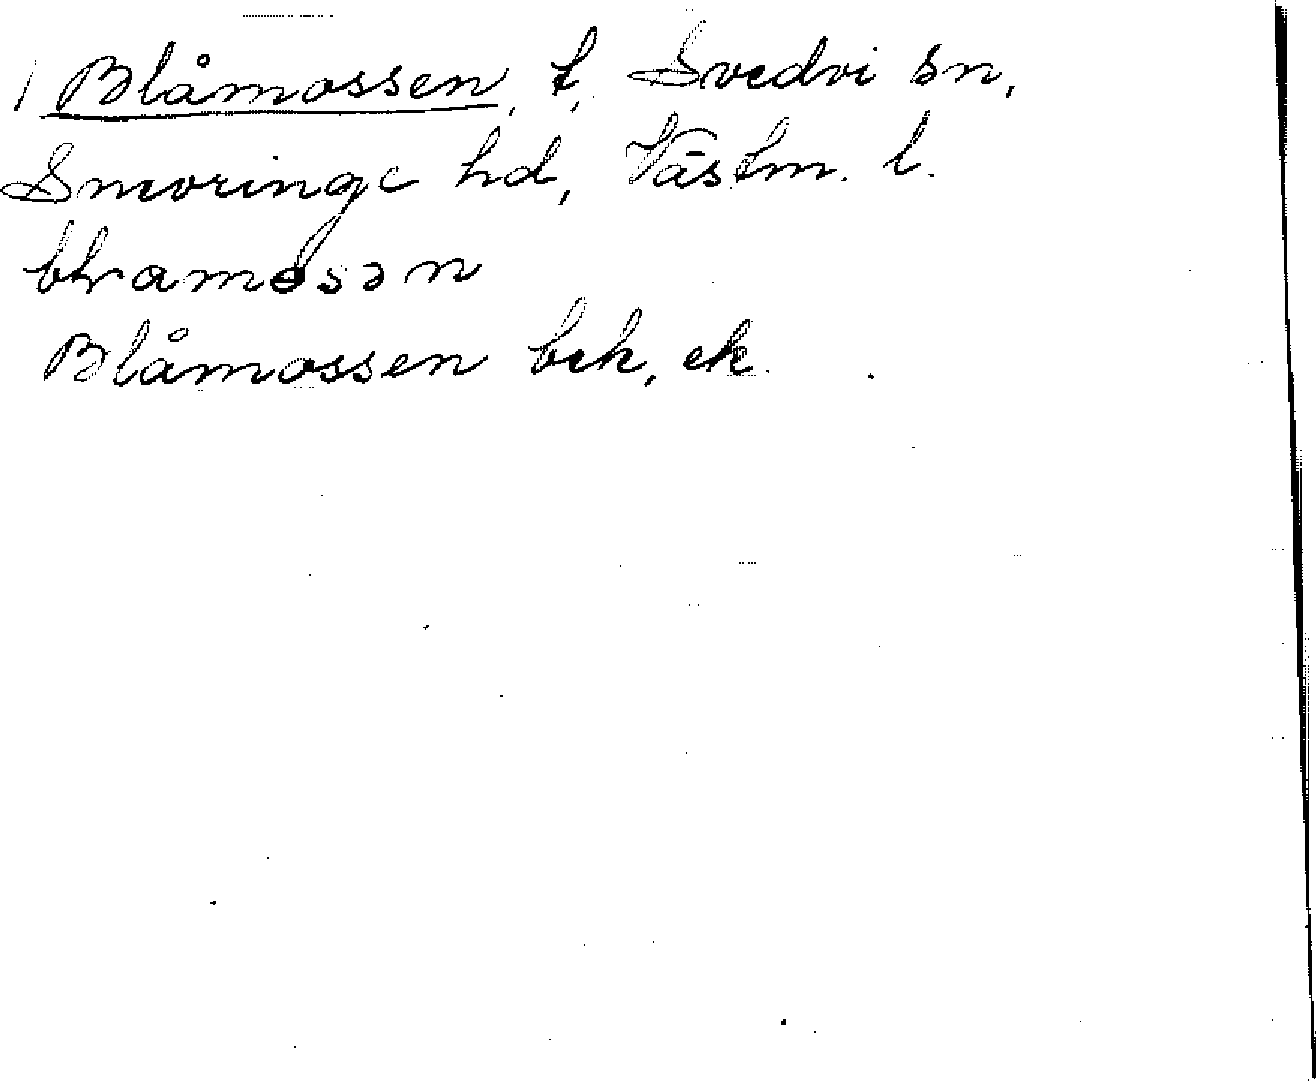 1 Blåmossen, t, Svedvi sn,
Snevringe hd, Västm. l.
Blåmossen bek, ek.